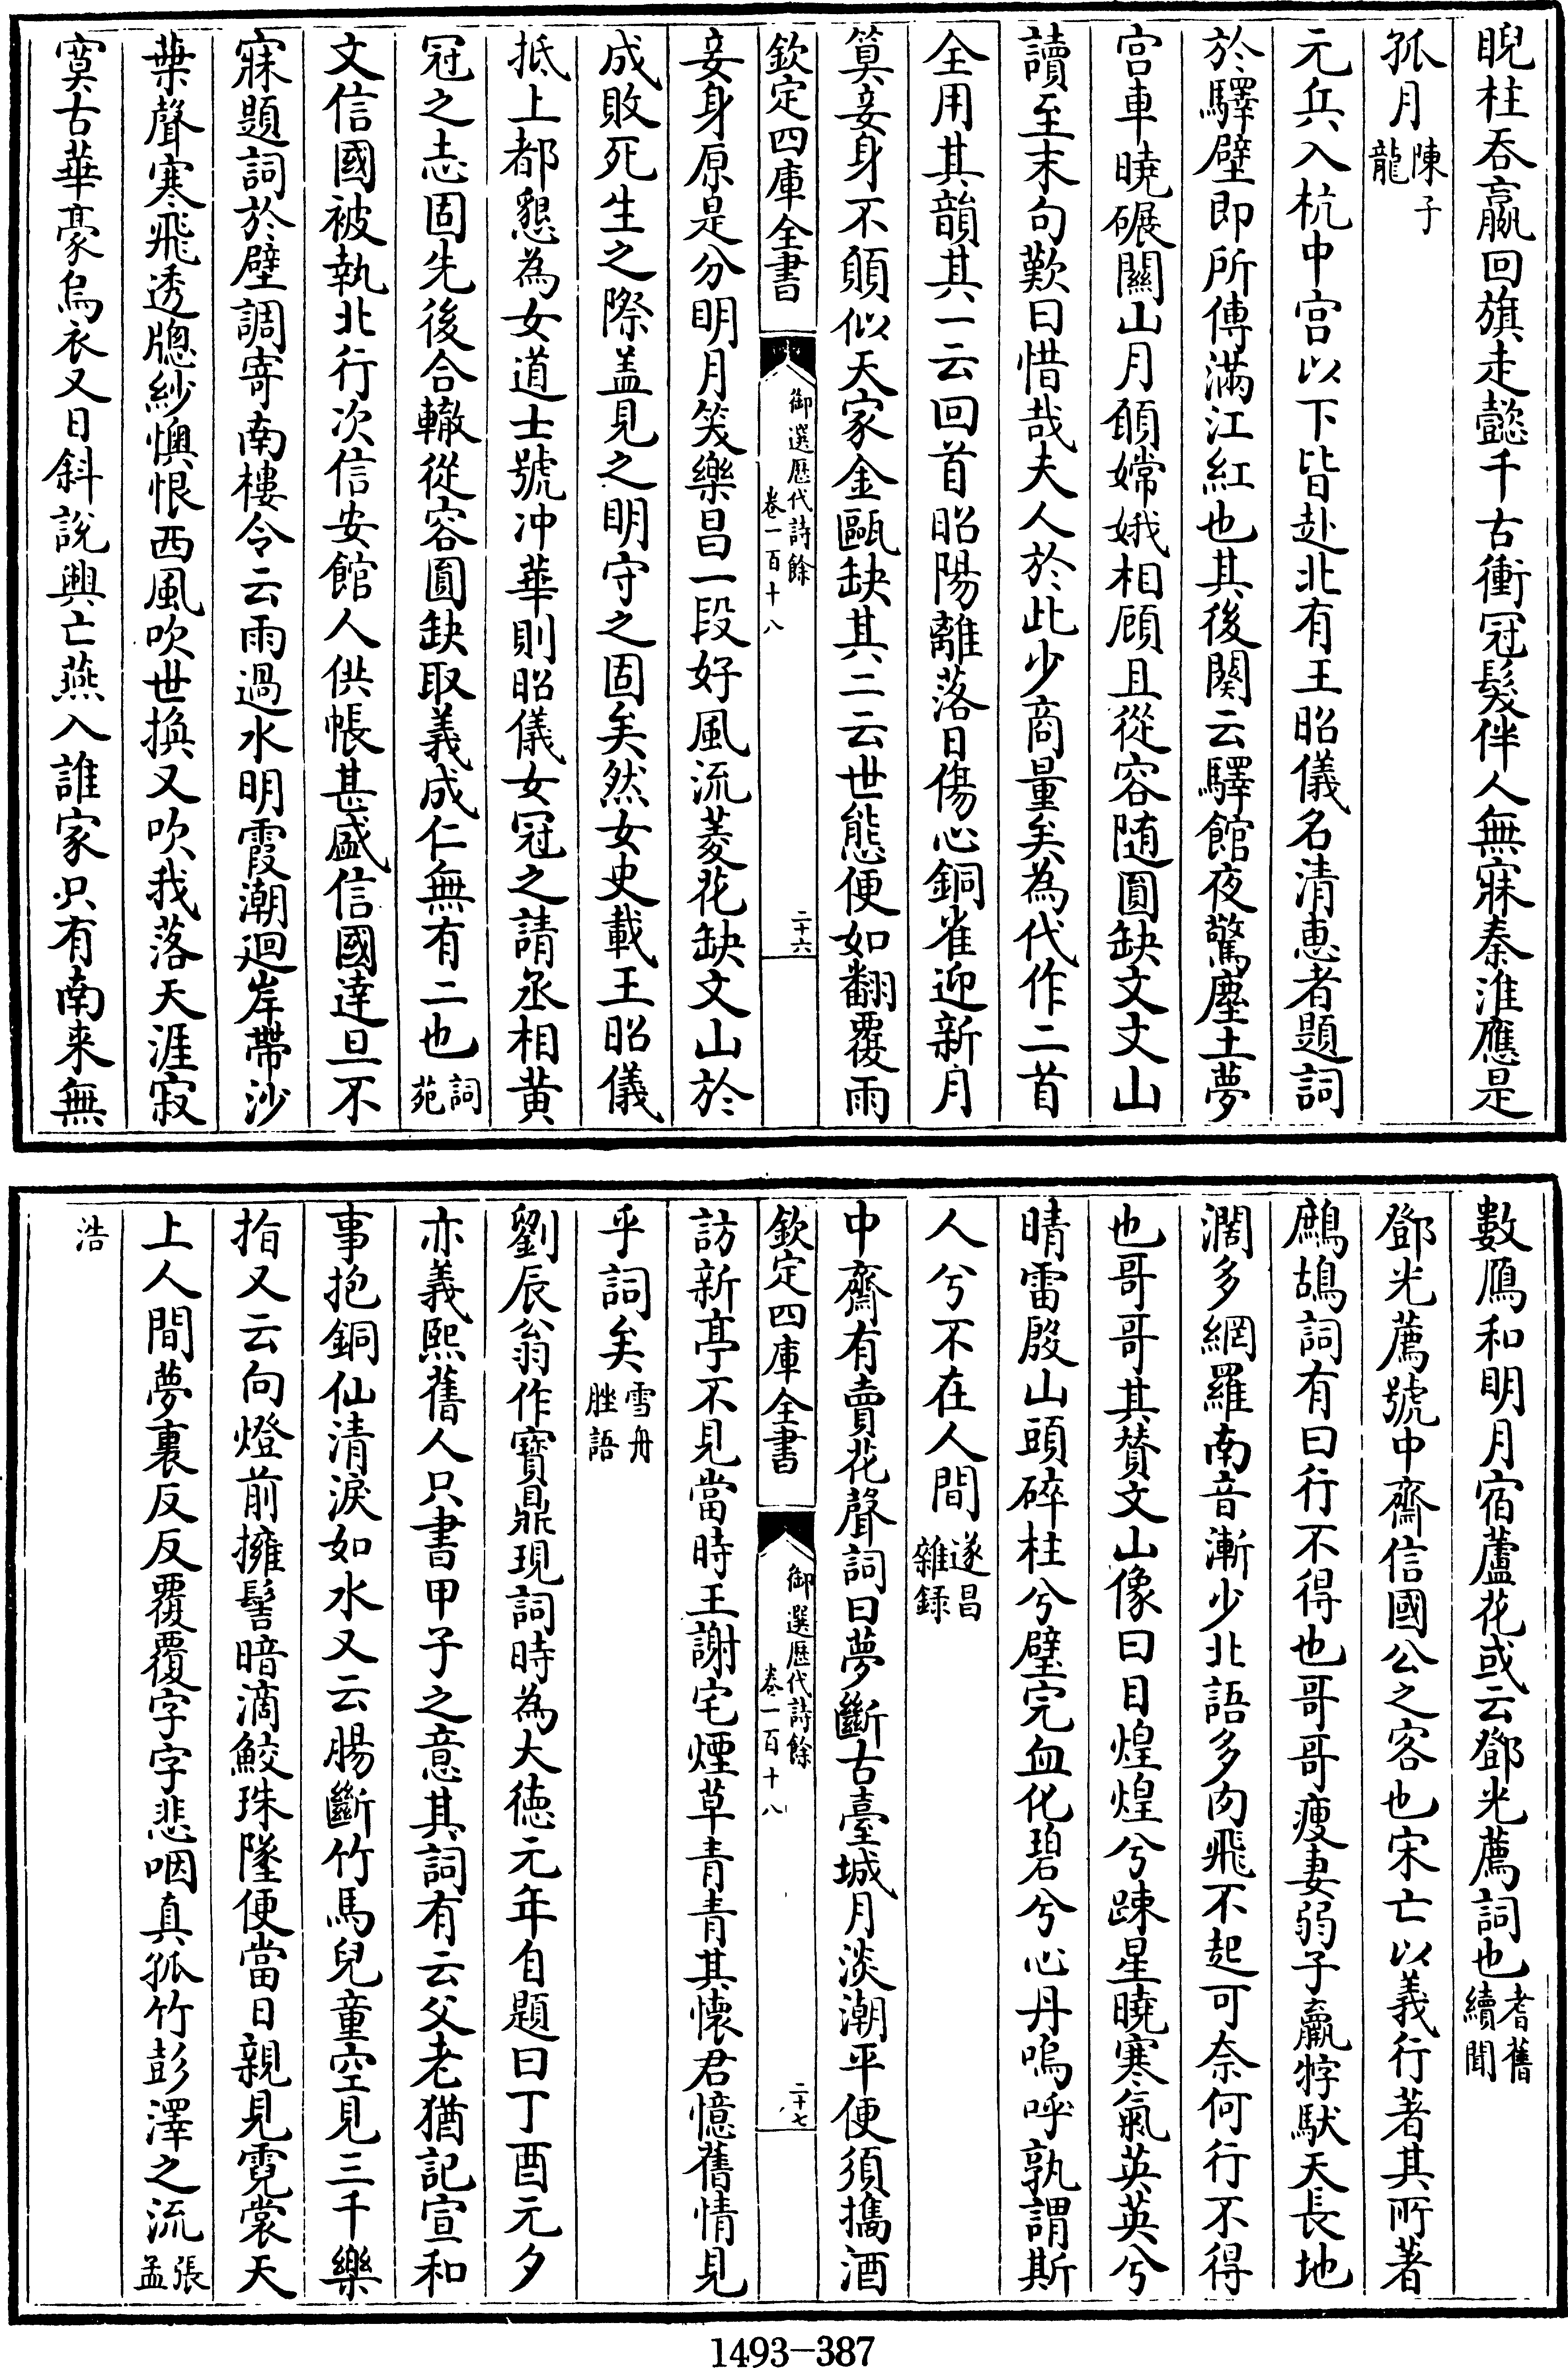 睨柱吞嬴回旗走懿千古衝冠髮伴人無寐秦淮應是
孤月陳子龍
元兵入杭中宫以下皆赴北有王昭儀名清惠者題詞
於驛壁即所傳滿江紅也其後闋云驛館夜驚塵土夢
宫車曉碾關山月願嫦娥相顧且從容随圓缺文文山
讀至末句歎曰惜哉夫人於此少商量矣為代作二首
全用其韻其一云回首昭陽離落日傷心銅雀迎新月
算妾身不願似天家金甌缺其二云世態便如翻覆雨
欽定四庫全書
御選歷代詩餘
卷一百十八
二十六
妾身原是分明月笑樂昌一段好風流菱花缺文山於
成敗死生之際盖見之明守之固矣然女史載王昭儀
抵上都懇為女道士號冲華則昭儀女冠之請丞相黄
冠之志固先後合轍從容圓缺取義成仁無有二也詞苑
文信國被執北行次信安館人供帳甚盛信國達旦不
寐題詞於壁調寄南樓令云雨過水明霞潮迴岸帶沙
葉聲寒飛透牕紗懊恨西風吹世换又吹我落天涯寂
寞古華豪烏衣又日斜說興亡燕入誰家只有南来無
數鴈和明月宿蘆花或云鄧光薦詞也耆舊續聞
鄧光薦號中齋信國公之客也宋亡以義行著其所著
鷓鴣詞有曰行不得也哥哥瘦妻弱子羸牸馱天長地
濶多網羅南音漸少北語多肉飛不起可奈何行不得
也哥哥其賛文山像曰目煌煌兮踈星曉寒氣英英兮
晴雷殷山頭碎柱兮璧完血化碧兮心丹嗚呼孰謂斯
人兮不在人間遂昌雜録
中齋有賣花聲詞曰夢斷古臺城月淡潮平便須攜酒
欽定四庫全書
御選歷代詩餘
卷一百十八
二十七
訪新亭不見當時王謝宅煙草青青其懷君憶舊情見
乎詞矣雪舟脞語
劉辰翁作寳鼎現詞時為大徳元年自題曰丁酉元夕
亦義熙舊人只書甲子之意其詞有云父老猶記宣和
事抱銅仙清淚如水又云腸斷竹馬兒童空見三千樂
指又云向燈前擁髻暗滴鮫珠墜便當日親見霓裳天
上人間夢裏反反覆覆字字悲咽真孤竹彭澤之流張孟
浩
1493-387